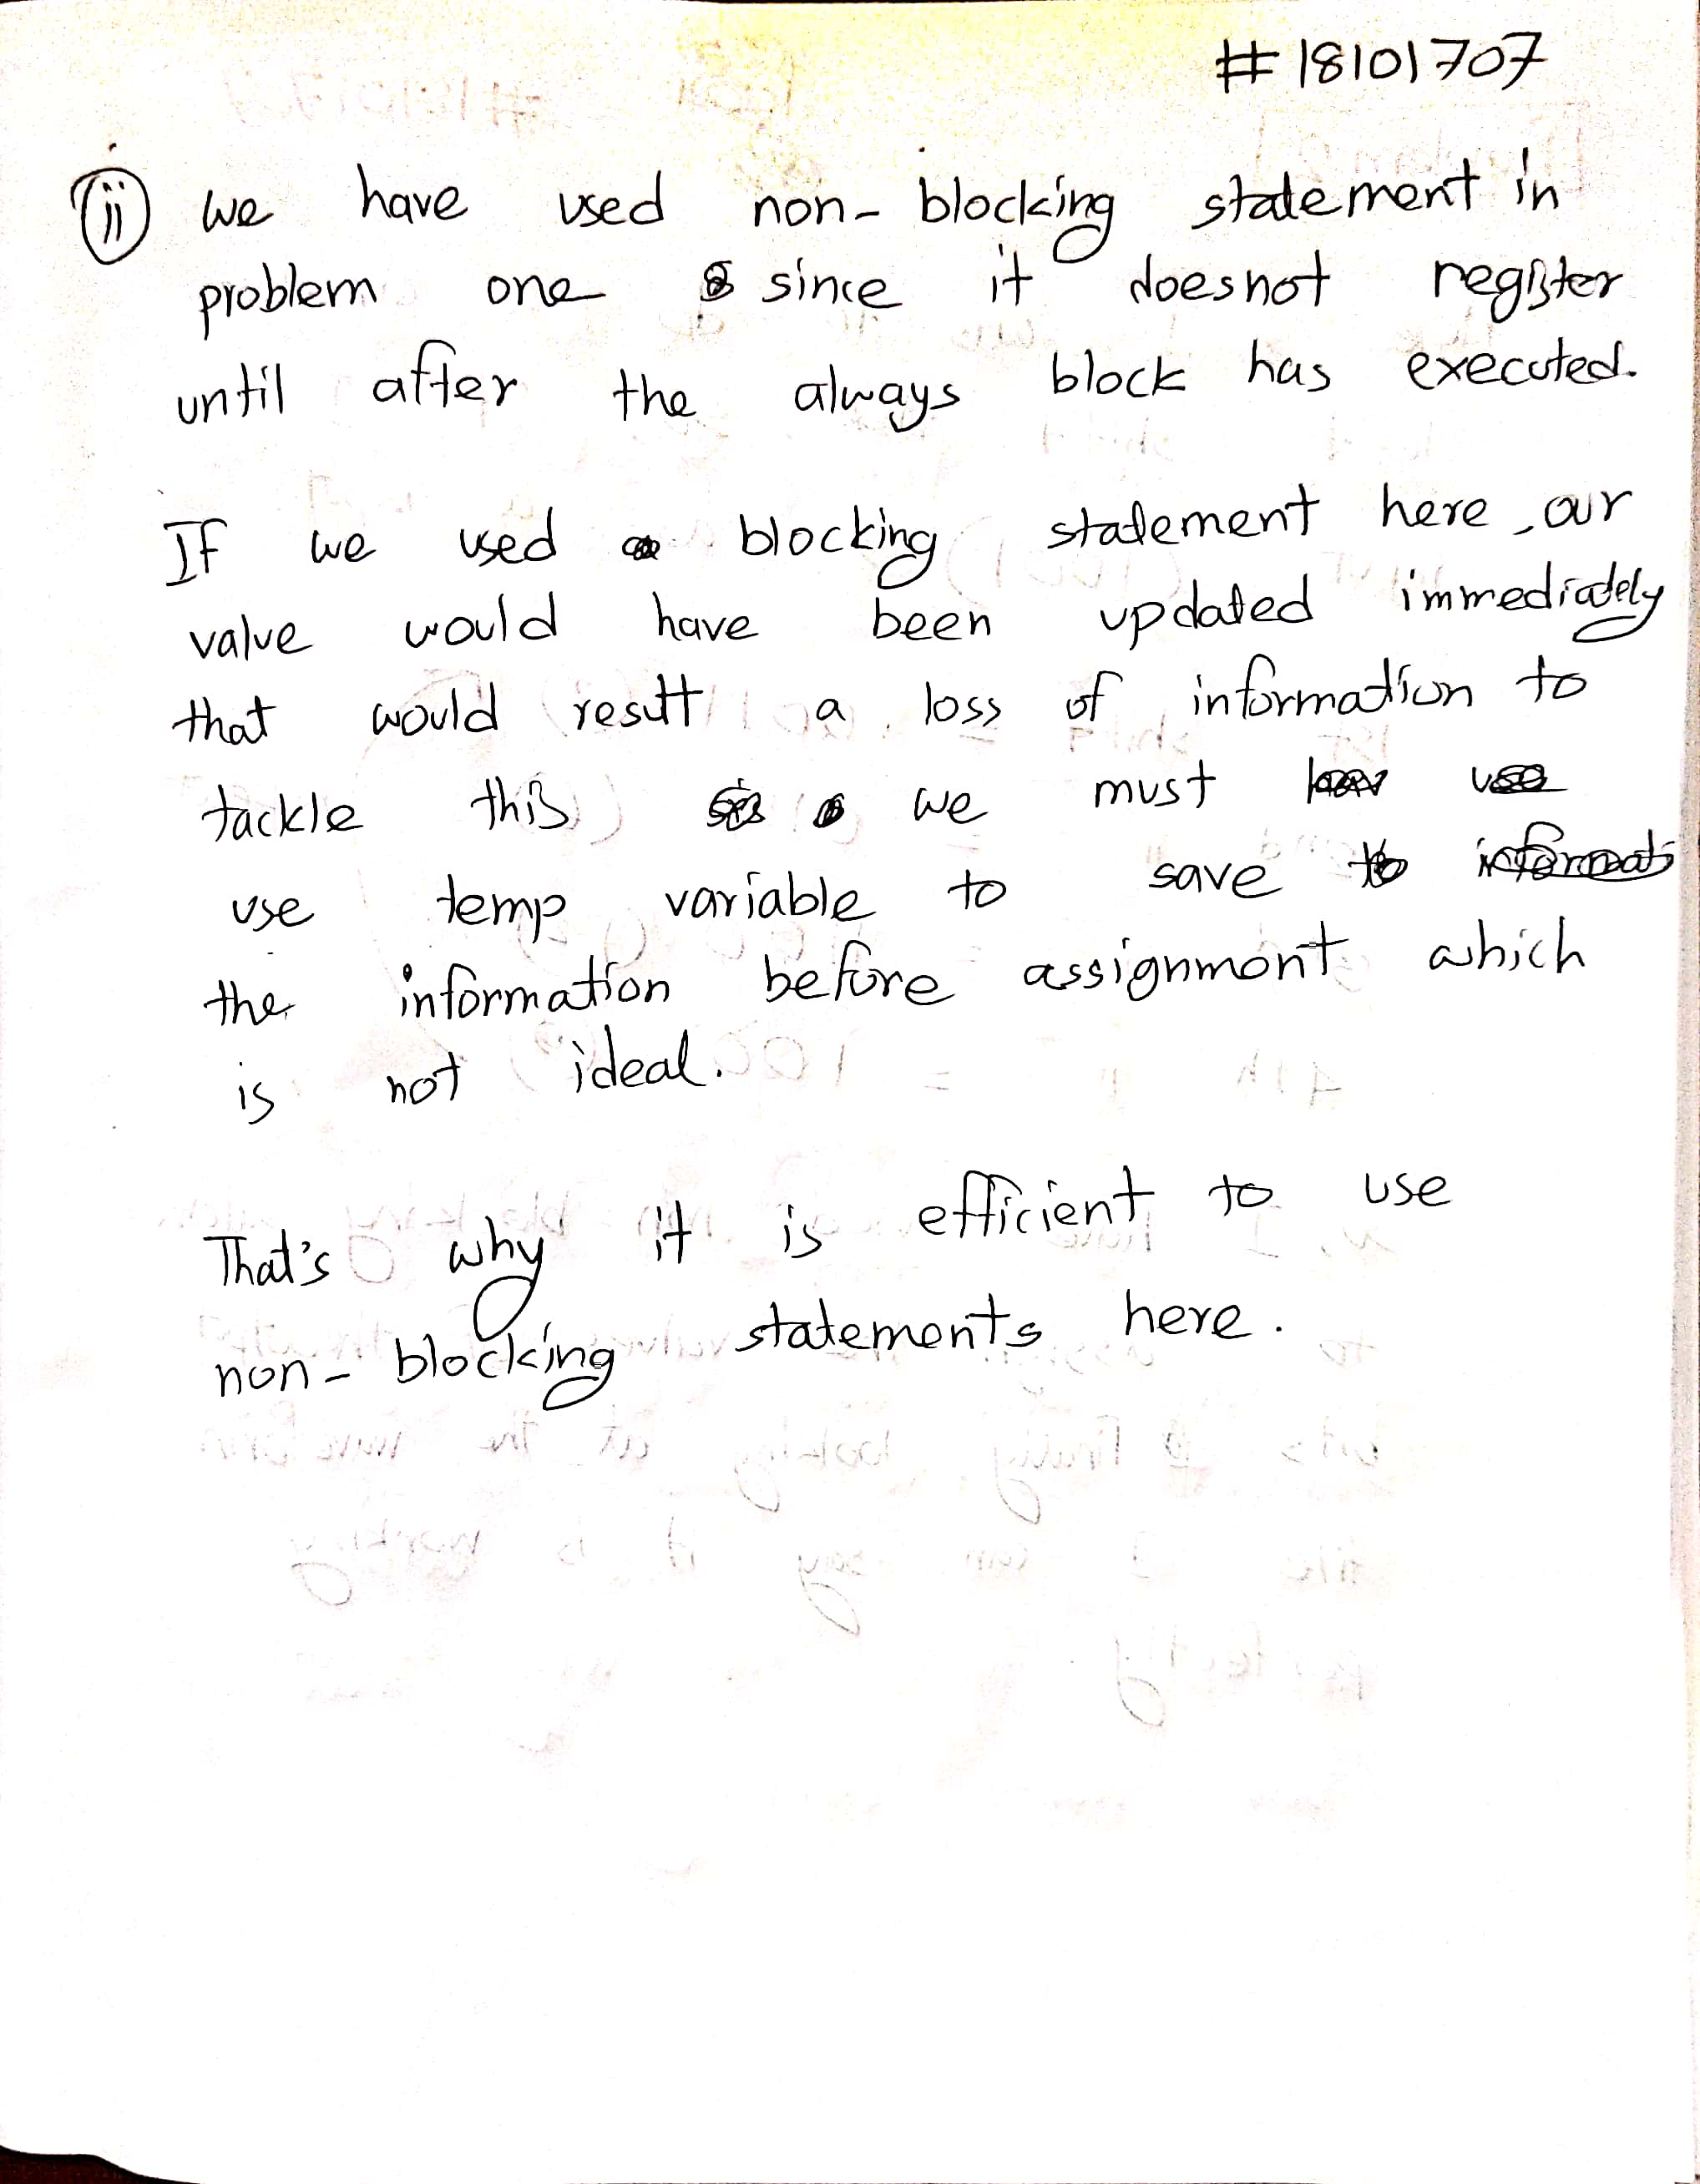 #18101707
ii we have used non-blocking statement in
problem one since it doesnot register
until after the always block has executed.
If we used blocking statement here, our
value would have been updated immediately
that would result a loss of information to
tackle this we must
use temp variable to save
the information before assignment which
is not ideal.
That's why it is efficient to use
non-blocking statements here.